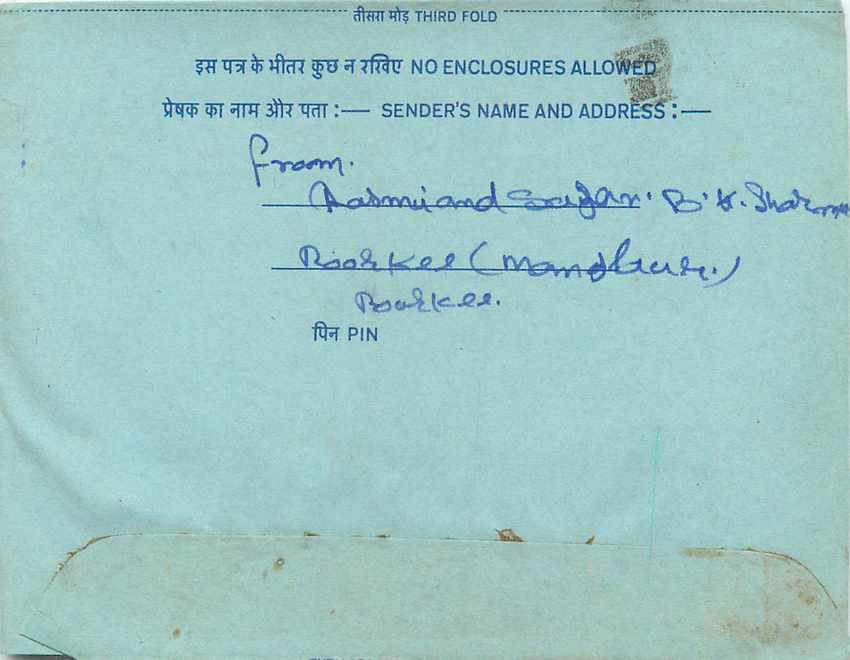 तीसरा मोड़ THIRD FOLD
इस पत्र के भीतर कुछ न रखिए NO ENCLOSURES ALLOWED
प्रेषक का नाम और पता :— SENDER'S NAME AND ADDRESS :—
From.
and B. K. Sharma
Roorkee (
Roorkee.
पिन PIN